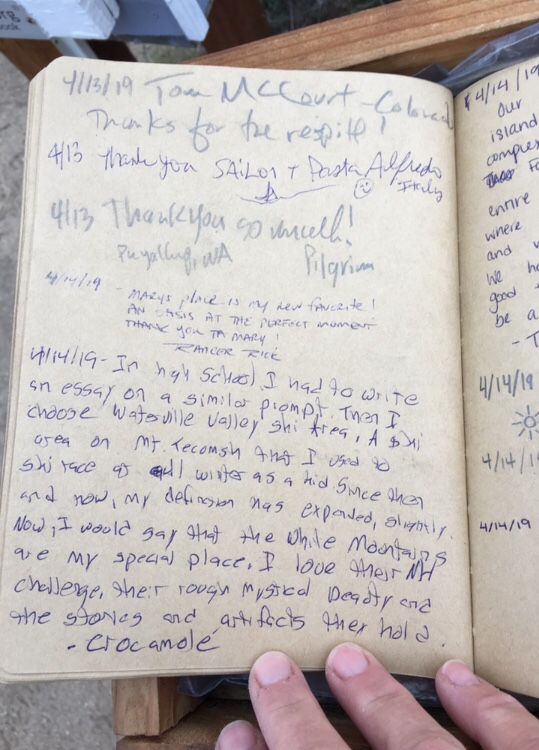 org
ook
4/13/19 Tom McCourt - Colorad
Thanks for the respitt!
4/13 Thank you SAiLor + Pasta Alfredo
Italy
4/13 Thank you so much!
Puyallup, WA Pilgrium
4/14/19 - MARYS PLACE IS MY NEW FAVORITE!
AN OASIS AT THE PERFECT MOMENT
THANK YOU TA MARY!
RANGER RICK
4/14/19 - In high School, I had to write
an essay on a similar prompt. Then I
choose Waterville Valley Ski Area, A Ski
area on Mt. Tecomsh that I used to
ski race at all winter as a kid Since then
and now, my definition has expanded, slightly.
Now, I would say that the White Mountains
are my special place. I love their NH
challenge, their rough mystical beauty and
the stories and artifacts they hold.
- Crocamole
4/14/19
Our
island
complex
Fo
entire
where
and w
We ha
good
be a
- T
4/14/19
4/14/1
4/14/19